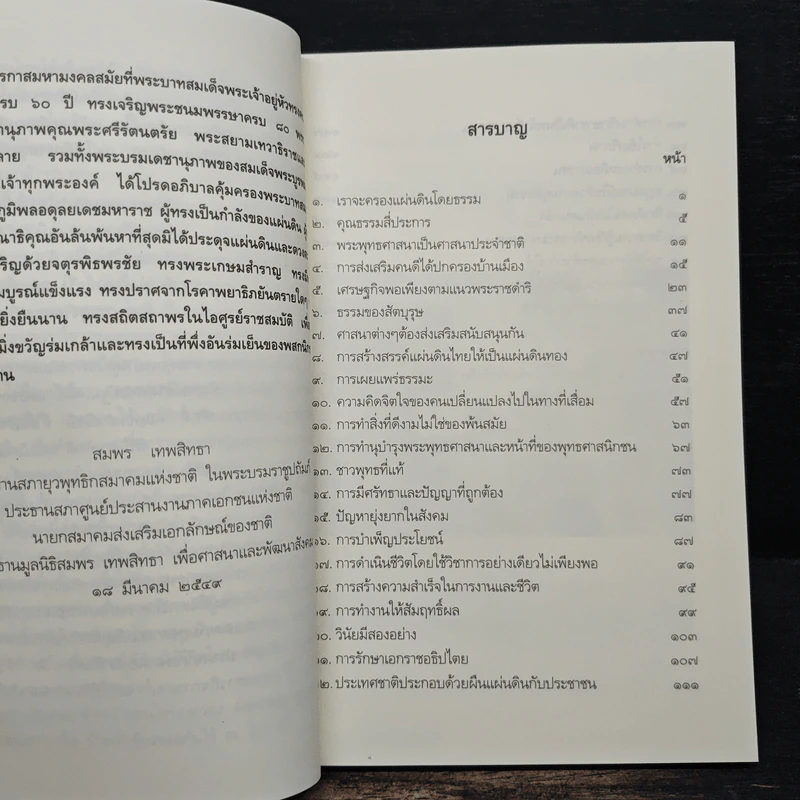 รกาสมหามงคลสมัยที่พระบาทสมเด็จพระเจ้าอยู่หัวทรง
รบ ๖๐ ปี ทรงเจริญพระชนมพรรษาครบ ๘๐
านุภาพคุณพระศรีรัตนตรัย พระสยามเทวาธิราช
าย รวมทั้งพระบรมเดชานุภาพของสมเด็จพระบูรพ
เจ้าทุกพระองค์ ได้โปรดอภิบาลคุ้มครองพระบาท
ภูมิพลอดุลยเดชมหาราช ผู้ทรงเป็นกำลังของแผ่นดิน
ณาธิคุณอันล้นพ้นหาที่สุดมิได้ประดุจแผ่นดินและ
ริญด้วยจตุรพิธพรชัย ทรงพระเกษมสำราญ
มบูรณ์แข็งแรง ทรงปราศจากโรคาพยาธิภยันตรายใดๆ
ยิ่งยืนนาน ทรงสถิตสถาพรในไอศูรย์ราชสมบัติ เพื่อ
มิ่งขวัญร่มเกล้าและทรงเป็นที่พึ่งอันร่มเย็นของพสกนิก
าน
สมพร เทพสิทธา
านสภายุวพุทธิกสมาคมแห่งชาติ ในพระบรมราชูปถัมภ์
ประธานสภาศูนย์ประสานงานภาคเอกชนแห่งชาติ
นายกสมาคมส่งเสริมเอกลักษณ์ของชาติ
านมูลนิธิสมพร เทพสิทธา เพื่อศาสนาและพัฒนาสังคม
๑๘ มีนาคม ๒๕๔๙
สารบาญ
หน้า
๑. เราจะครองแผ่นดินโดยธรรม ๑
๒. คุณธรรมสี่ประการ ๕
๓. พระพุทธศาสนาเป็นศาสนาประจำชาติ ๑๑
๔. การส่งเสริมคนดีได้ปกครองบ้านเมือง ๑๕
๕. เศรษฐกิจพอเพียงตามแนวพระราชดำริ ๒๓
๖. ธรรมของสัตบุรุษ ๓๗
๗. ศาสนาต่างๆต้องส่งเสริมสนับสนุนกัน ๔๑
๘. การสร้างสรรค์แผ่นดินไทยให้เป็นแผ่นดินทอง ๔๗
๙. การเผยแพร่ธรรมะ ๕๑
๑๐. ความคิดจิตใจของคนเปลี่ยนแปลงไปในทางที่เสื่อม ๕๗
๑๑. การทำสิ่งที่ดีงามไม่ใช่ของพ้นสมัย ๖๓
๑๒. การทำนุบำรุงพระพุทธศาสนาและหน้าที่ของพุทธศาสนิกชน ๖๗
๑๓. ชาวพุทธที่แท้ ๗๓
๑๔. การมีศรัทธาและปัญญาที่ถูกต้อง ๗๗
๑๕. ปัญหายุ่งยากในสังคม ๘๓
๑๖. การบำเพ็ญประโยชน์ ๘๗
๑๗. การดำเนินชีวิตโดยใช้วิชาการอย่างเดียวไม่เพียงพอ ๙๑
๑๘. การสร้างความสำเร็จในการงานและชีวิต ๙๕
๑๙. การทำงานให้สัมฤทธิ์ผล ๙๙
๒๐. วินัยมีสองอย่าง ๑๐๓
๒๑. การรักษาเอกราชอธิปไตย ๑๐๗
๒๒. ประเทศชาติประกอบด้วยผืนแผ่นดินกับประชาชน ๑๑๑